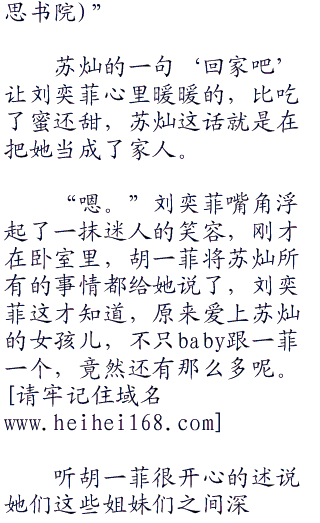 思书院)”
苏灿的一句‘回家吧’
让刘奕菲心里暖暖的，比吃
了蜜还甜，苏灿这话就是在
把她当成了家人。
“嗯。”刘奕菲嘴角浮
起了一抹迷人的笑容，刚才
在卧室里，胡一菲将苏灿所
有的事情都给她说了，刘奕
菲这才知道，原来爱上苏灿
的女孩儿，不只baby跟一菲
一个，竟然还有那么多呢。
[请牢记住域名
www.heihei168.com]
听胡一菲很开心的述说
她们这些姐妹们之间深